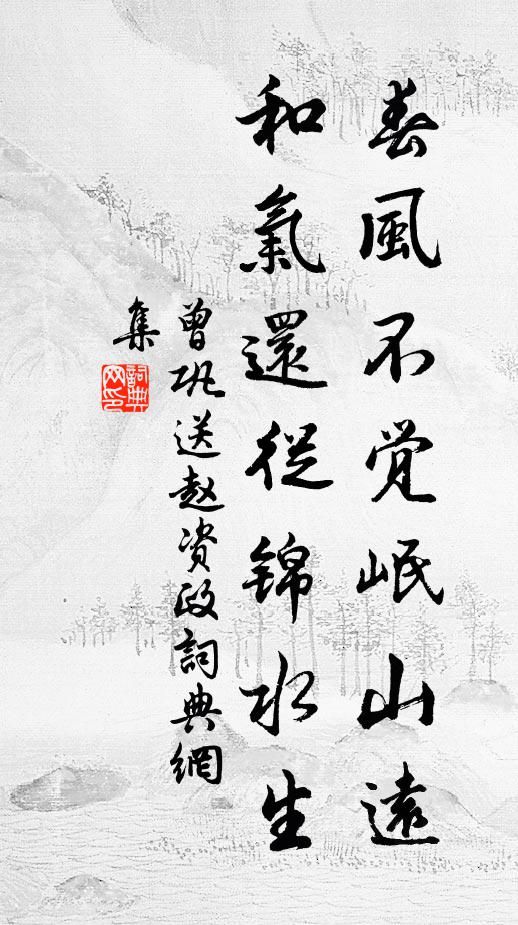 春風不觉岷山遠
和氣還從錦水生
曾巩送赵资政詞典網
集
詞典
网印